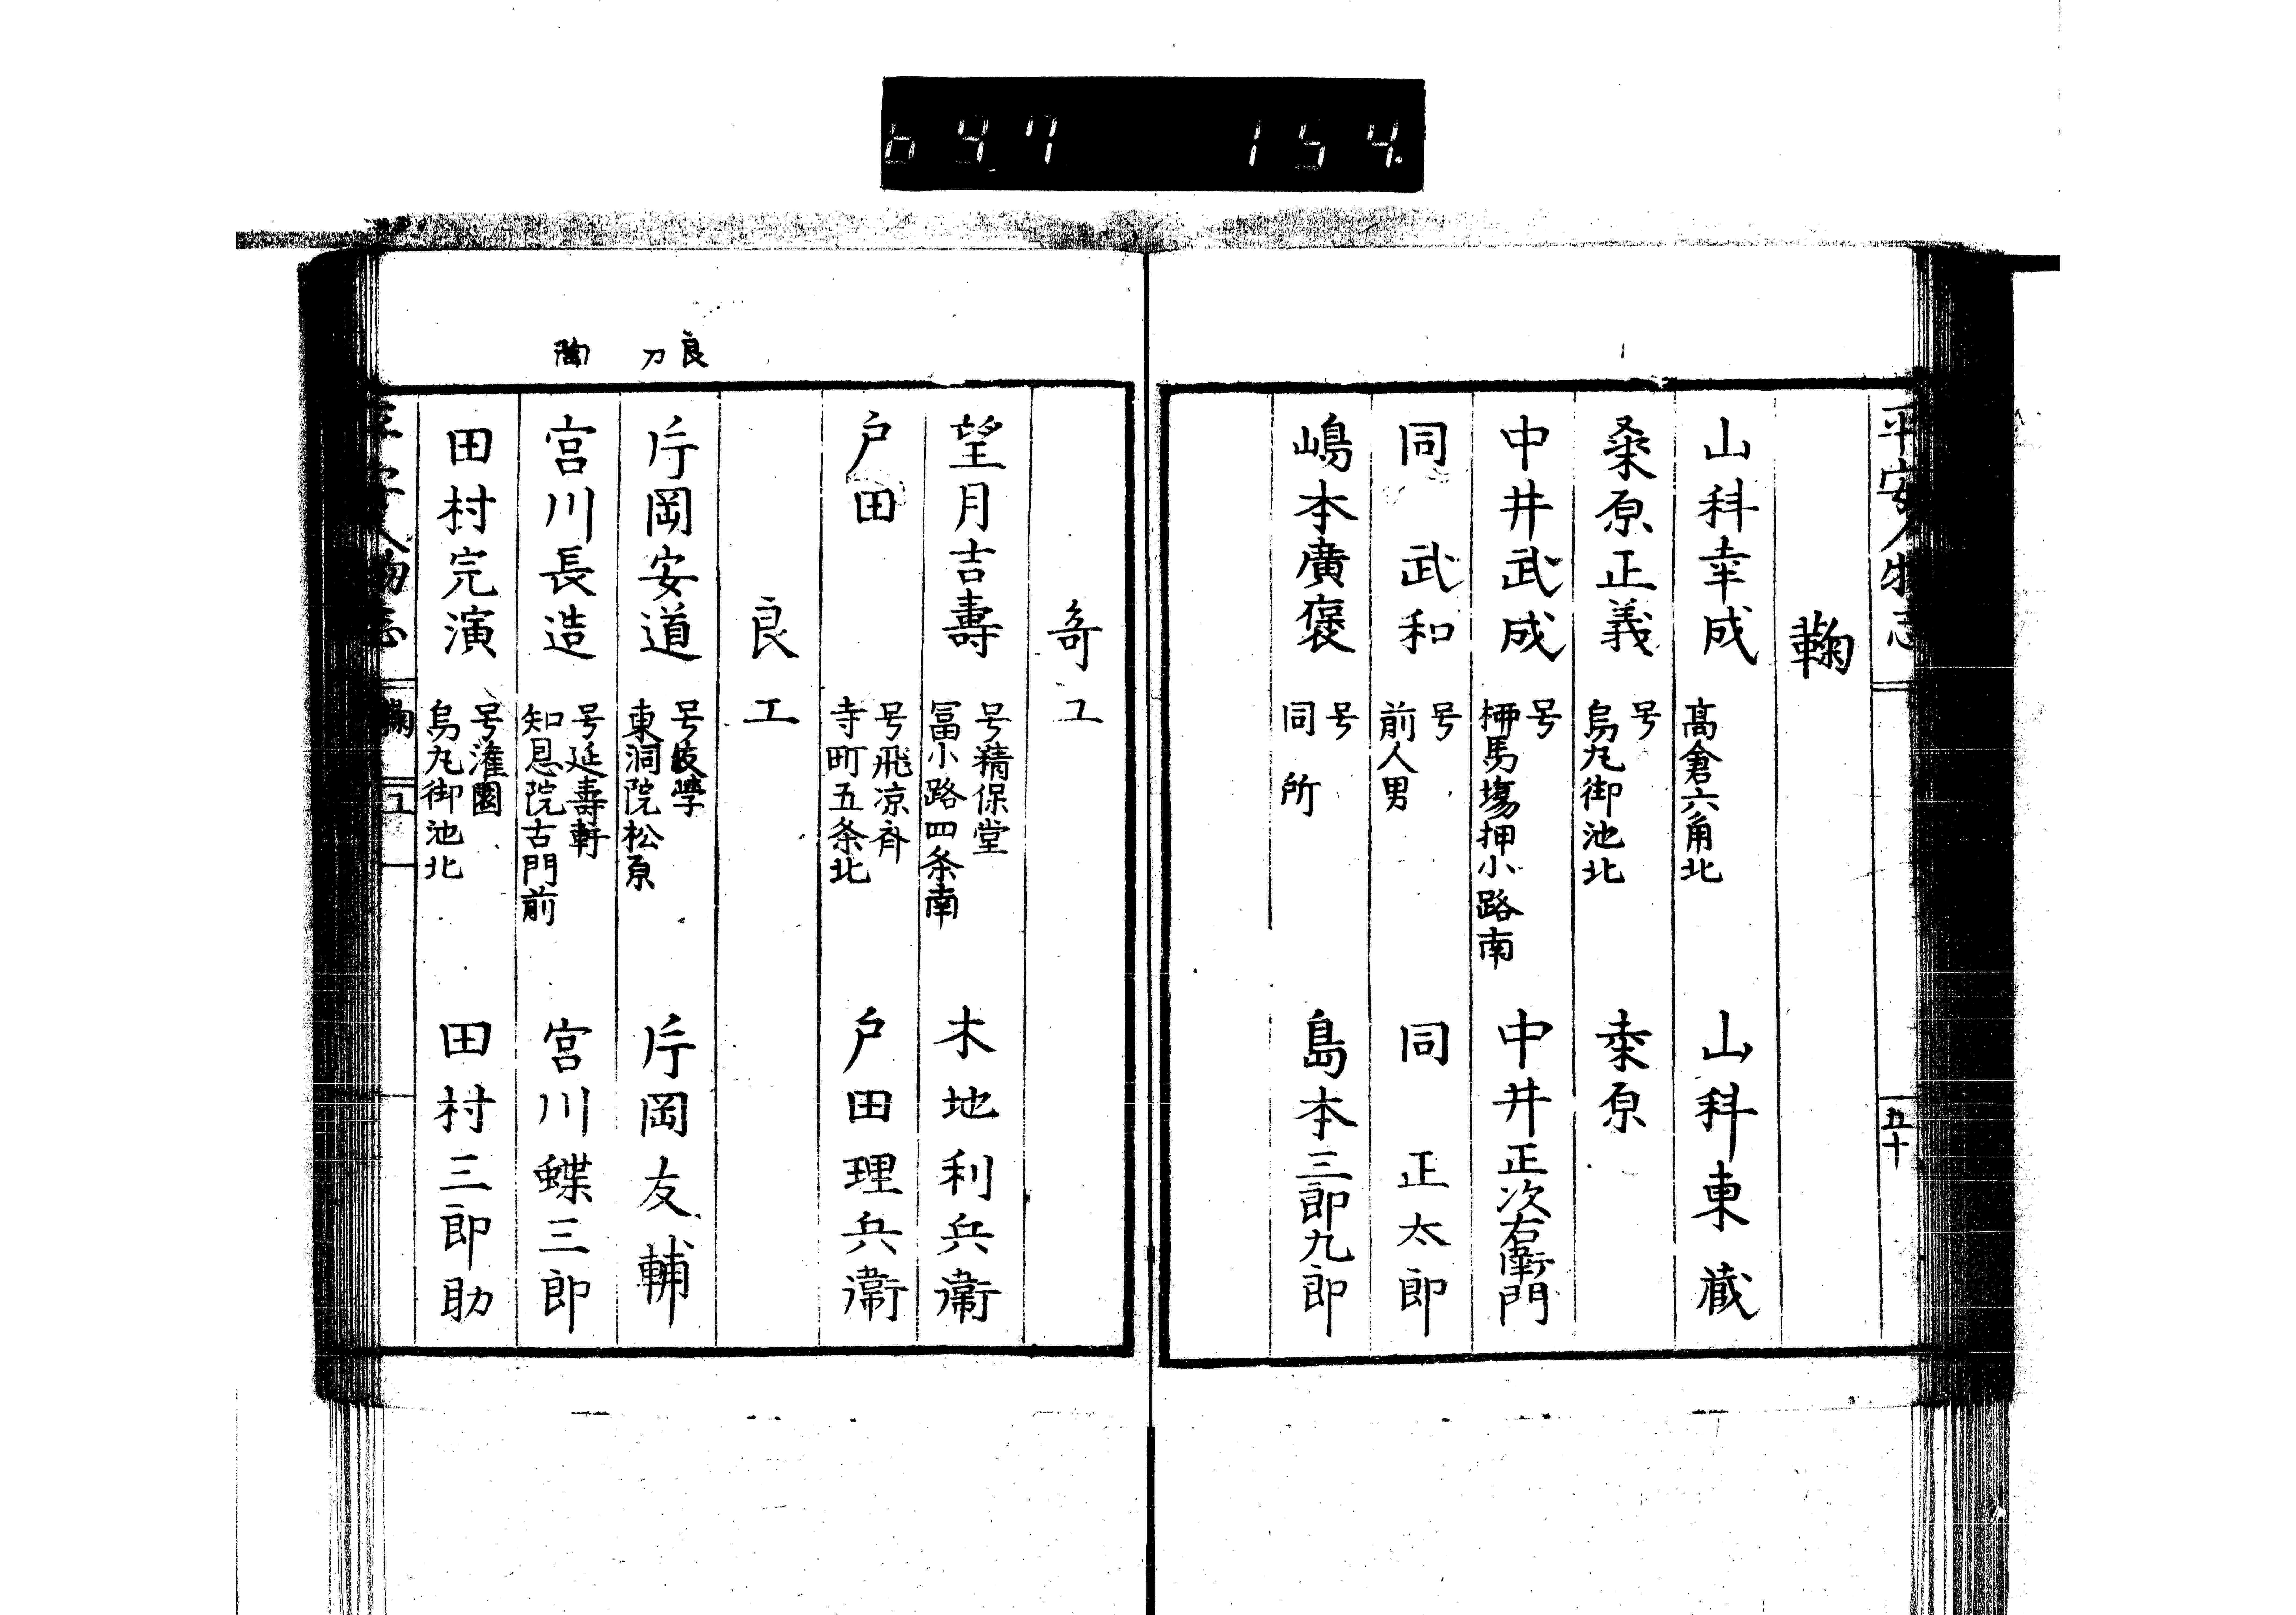 647 154
平安人物志
五十
鞠
山科幸成 高倉六角北 山科東蔵
桑原正義 号 烏丸御池北 桒原
中井武成 号 栁馬場押小路南 中井正次右衛門
同 武和 号 前人男 同 正太郎
嶋本廣褒 号 同所 島本三郎九郎
竒工
望月吉壽 号精保堂 冨小路四条南 木地利兵衛
戸田 号飛凉斉 寺町五条北 戸田理兵衛
良工
良
刀
片岡安道 号 東洞院松原 片岡友輔
陶
宮川長造 号延壽軒 知恩院古門前 宮川蝶三郎
田村完演 号 烏丸御池北 田村三郎助
平安人物志 鞠 工